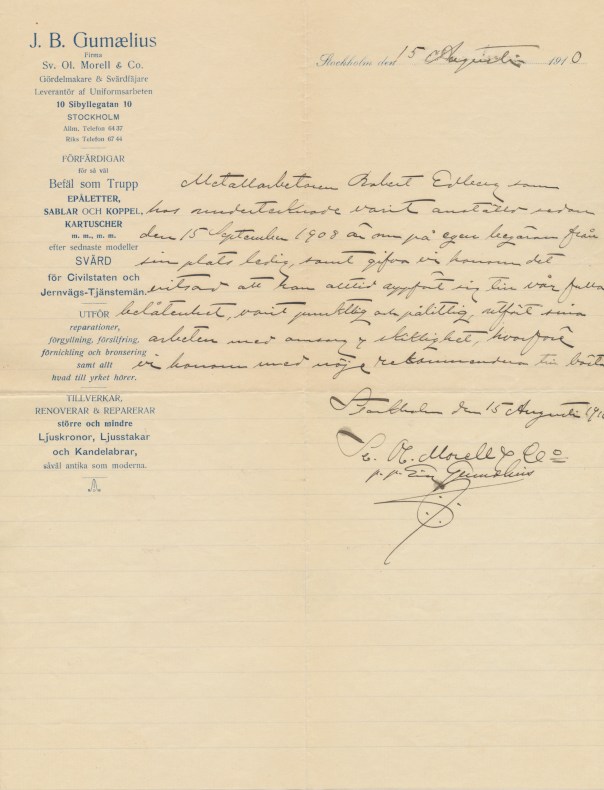 J. B. Gumælius
Firma
Sv. Ol. Morell & Co.
Gördelmakare & Svärdfäjare
Leverantör af Uniformsarbeten
10 Sibyllegatan 10
STOCKHOLM
Allm. Telefon 64 37
Riks Telefon 67 44
FÖRFÄRDIGAR
för så väl
Befäl som Trupp
EPÅLETTER,
SABLAR OCH KOPPEL,
KARTUSCHER
m. m., m. m.
efter sednaste modeller
SVÄRD
för Civilstaten och
Jernvägs-Tjänstemän.
UTFÖR
reparationer,
förgyllning, försilfring,
förnickling och bronsering
samt allt
hvad till yrket hörer.
TILLVERKAR,
RENOVERAR & REPARERAR
större och mindre
Ljuskronor, Ljusstakar
och Kandelabrar,
såväl antika som moderna.
Stockholm den 15 Augusti 1910
Metallarbetaren Robert Edberg som
hos undertecknade varit anställd sedan
den 15 September 1908 är om på egen begäran från
sin plats ledig, samt gifva vi honom det
vitsord att han alltid uppfört sig till vår fulla
belåtenhet, varit punktlig och pålitlig, utfört sina
arbeten med omsorg & skicklighet, hvarföre
vi honom med nöje rekommendera till bästa
Stockholm den 15 Augusti 1910
S. O. Morell & Co
p. p. Gumælius